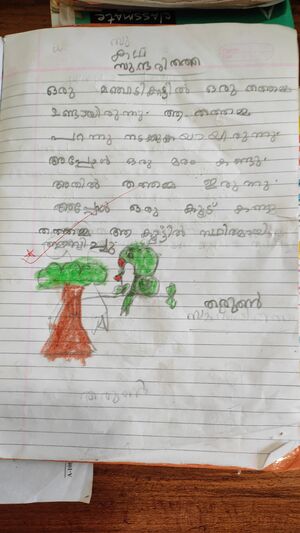 classmate
സു
കഥ
സുന്ദരിതത്ത
ഒരു മഞ്ചാടികാട്ടിൽ ഒരു തത്തമ്മ
ഉണ്ടായിരുന്നു. ആ തത്തമ്മ
പറന്നു നടക്കുകയായിരുന്നു.
അപ്പോൾ ഒരു മരം കണ്ടു.
അതിൽ തത്തമ്മ ഇരുന്നു.
അപ്പോൾ ഒരു കൂട് കണ്ടു
തത്തമ്മ ആ കൂട്ടിൽ സ്ഥിരമായും
താമസിച്ചു
തരുൺ